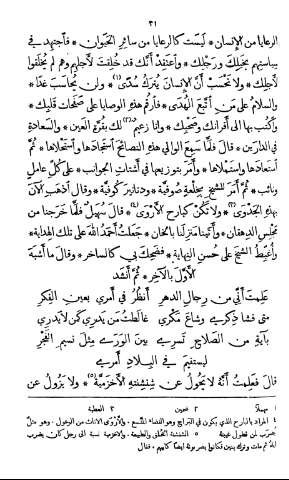 ٣١
الرعايا من الإنسان * ليست كالرعايا من سائر الحيوان * فاجتهد في
سياستهم بخيلك ورجلك * واعتقد أنك قد خلقت لأجلهم وهم لم يخلقوا
لأجلك * ولا تحسب أنّ الإنسان يترك سُدًى(١) * ولن يحاسب غدًا *
والسلام على من اتبع الهدى * فارقم هذه الوصايا على صفحات قلبك *
واكتب بها الى أقرانك وصحبك * وانا زعيم(٢) لك بقرة العين * والسعادة
في الدارين * قال فلمّا سمع الوالي هذه النصائح استجادها * واستعادها * ثمّ
استعادها واستملاها * وأمر بتوزيعها في أشتات الجوانب * على كلّ عامل
ونائب * ثمّ أمر للشيخ بخلعةٍ صوفية * ودنانير كوفية * وقال اذهب الآن
بهذه الجدوى(٣) * ولا تكن كبارح الأروى(٤) * قال سهيل فلمّا خرجنا من
مجلس الدهقان * وأتينا منزلنا بالخان * جعلت أحمد الله على تلك الهداية *
وأغبط الشيخ على حسن النهاية * فضحك بي كالساخر * وقال ما أشبه
الأول بالآخر * ثمّ أنشد
علمت أنّي من رجال الدهر أنظر في أمري بعين الفكر
متى فشا ذكري وشاع مكري غالطت من يدري كمن لا يدري
بآية من الصلاح تسري بين الورى مثل نسيم الفجر
ليستقيم في البلاد أمري
قال فعلمت أنّه لا يحول عن شنشنته الأخزمية(٥) * ولا يزول عن
١ مهملًا ٢ ضمين ٣ العطية
٤ المراد بالبارح الذي يكون في البراح وهو الفضاء المتّسع. والأروى الاناث من الوعول. وهو مثل
يضرب لمن تطول غيبته ٥ الشنشنة الخلق والطبيعة. والاخزمية نسبة الى رجل كان يضرب
اباه ثم مات وترك بنين فكانوا يضربونه ايضًا كابيهم. فقال